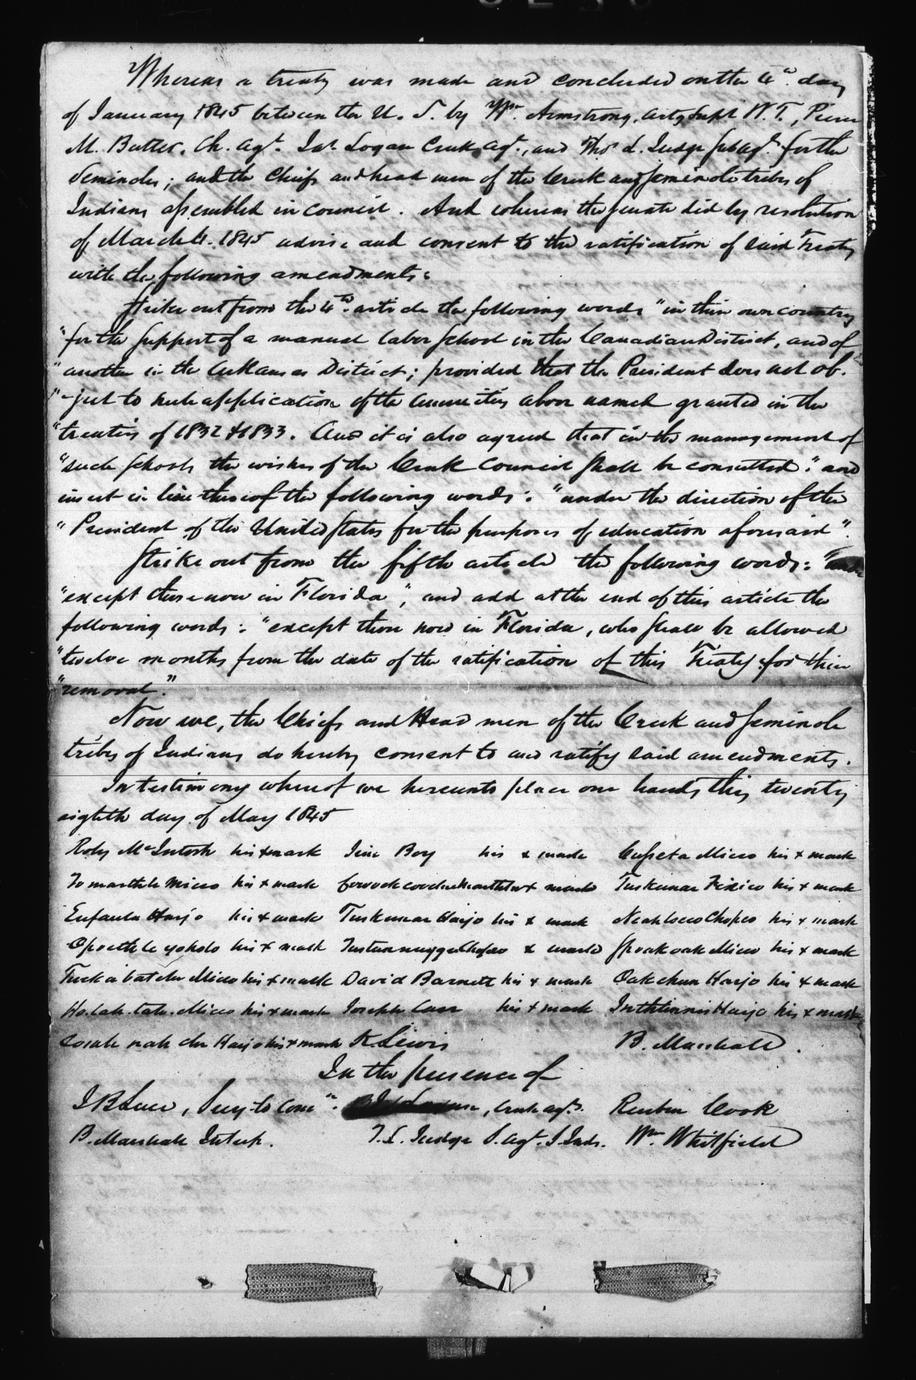 Whereas a treaty was made and concluded on the 4th day
of January 1845 between the U. S. by Wm. Armstrong, Actg Supt W. T., Pierce
M. Butler, Ch. Agt. Jas Logan Creek Agt., and Thos L. Judge Sub agt. for the
Seminoles, and the Chiefs and head men of the Creek and Seminole tribes of
Indians assembled in council. And whereas the Senate did by resolution
of March 4. 1845 advise and consent to the ratification of said Treaty
with the following amendments:
Strike out from the 4th article the following words "in their own country
"for the support of a manual labor School in the Canadian District, and of
"another in the Arkansas District; provided that the President does not ob-
"-ject to such application of the annuities above named granted in the
"treaties of 1832 & 1833. And it is also agreed that in the management of
"such Schools the wishes of the Creek Council shall be consulted": and
insert in lieu thereof the following words: "under the direction of the
"President of the United States for the purposes of education aforesaid".
Strike out from the fifth article the following words: "
"except those now in Florida", and add at the end of this article the
following words: "except those now in Florida, who shall be allowed
"twelve months from the date of the ratification of this Treaty for their
"removal".
Now we, the Chiefs and Head men of the Creek and Seminole
tribes of Indians do hereby consent to and ratify said amendments.
In testimony whereof we hereunto place our hands this twenty
eighth day of May 1845
Roly McIntosh his x mark Jim Boy his x mark Cusseta Micco his x mark
To marth le Micco his x mark x mark Tuskunar Fixico his x mark
Eufaula Harjo his x mark Tuskunar Harjo his x mark Neah loco Chopco his x mark
Opoeth le yoholo his x mark x mark Spoak oak Micco his x mark
Tuck a batche Micco his x mark David Barnett his x mark Oak chun Harjo his x mark
Ho lah ta Micco his x mark Joseph Carr his x mark Harjo his x mark
Harjo his x mark K Lewis B. Marshall.
In the presence of
J B Luce, Secy to Com". , Creek agt. Reuben Cook
B. Marshall Interp. T. L. Judge S. Agt. S. Inds. Wm. Whitfield